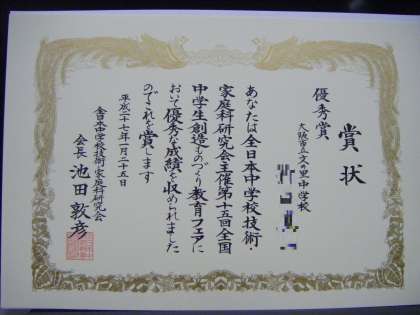 賞状
優秀賞
大阪市立文の里中学校
あなたは全日本中学校技術・
家庭科研究会主催第十五回全国
中学生創造ものづくり教育フェアに
おいて優秀な成績を収められました
のでこれを賞します
平成二十七年一月二十五日
全日本中学校技術・家庭科研究会
会長 池田敦彦